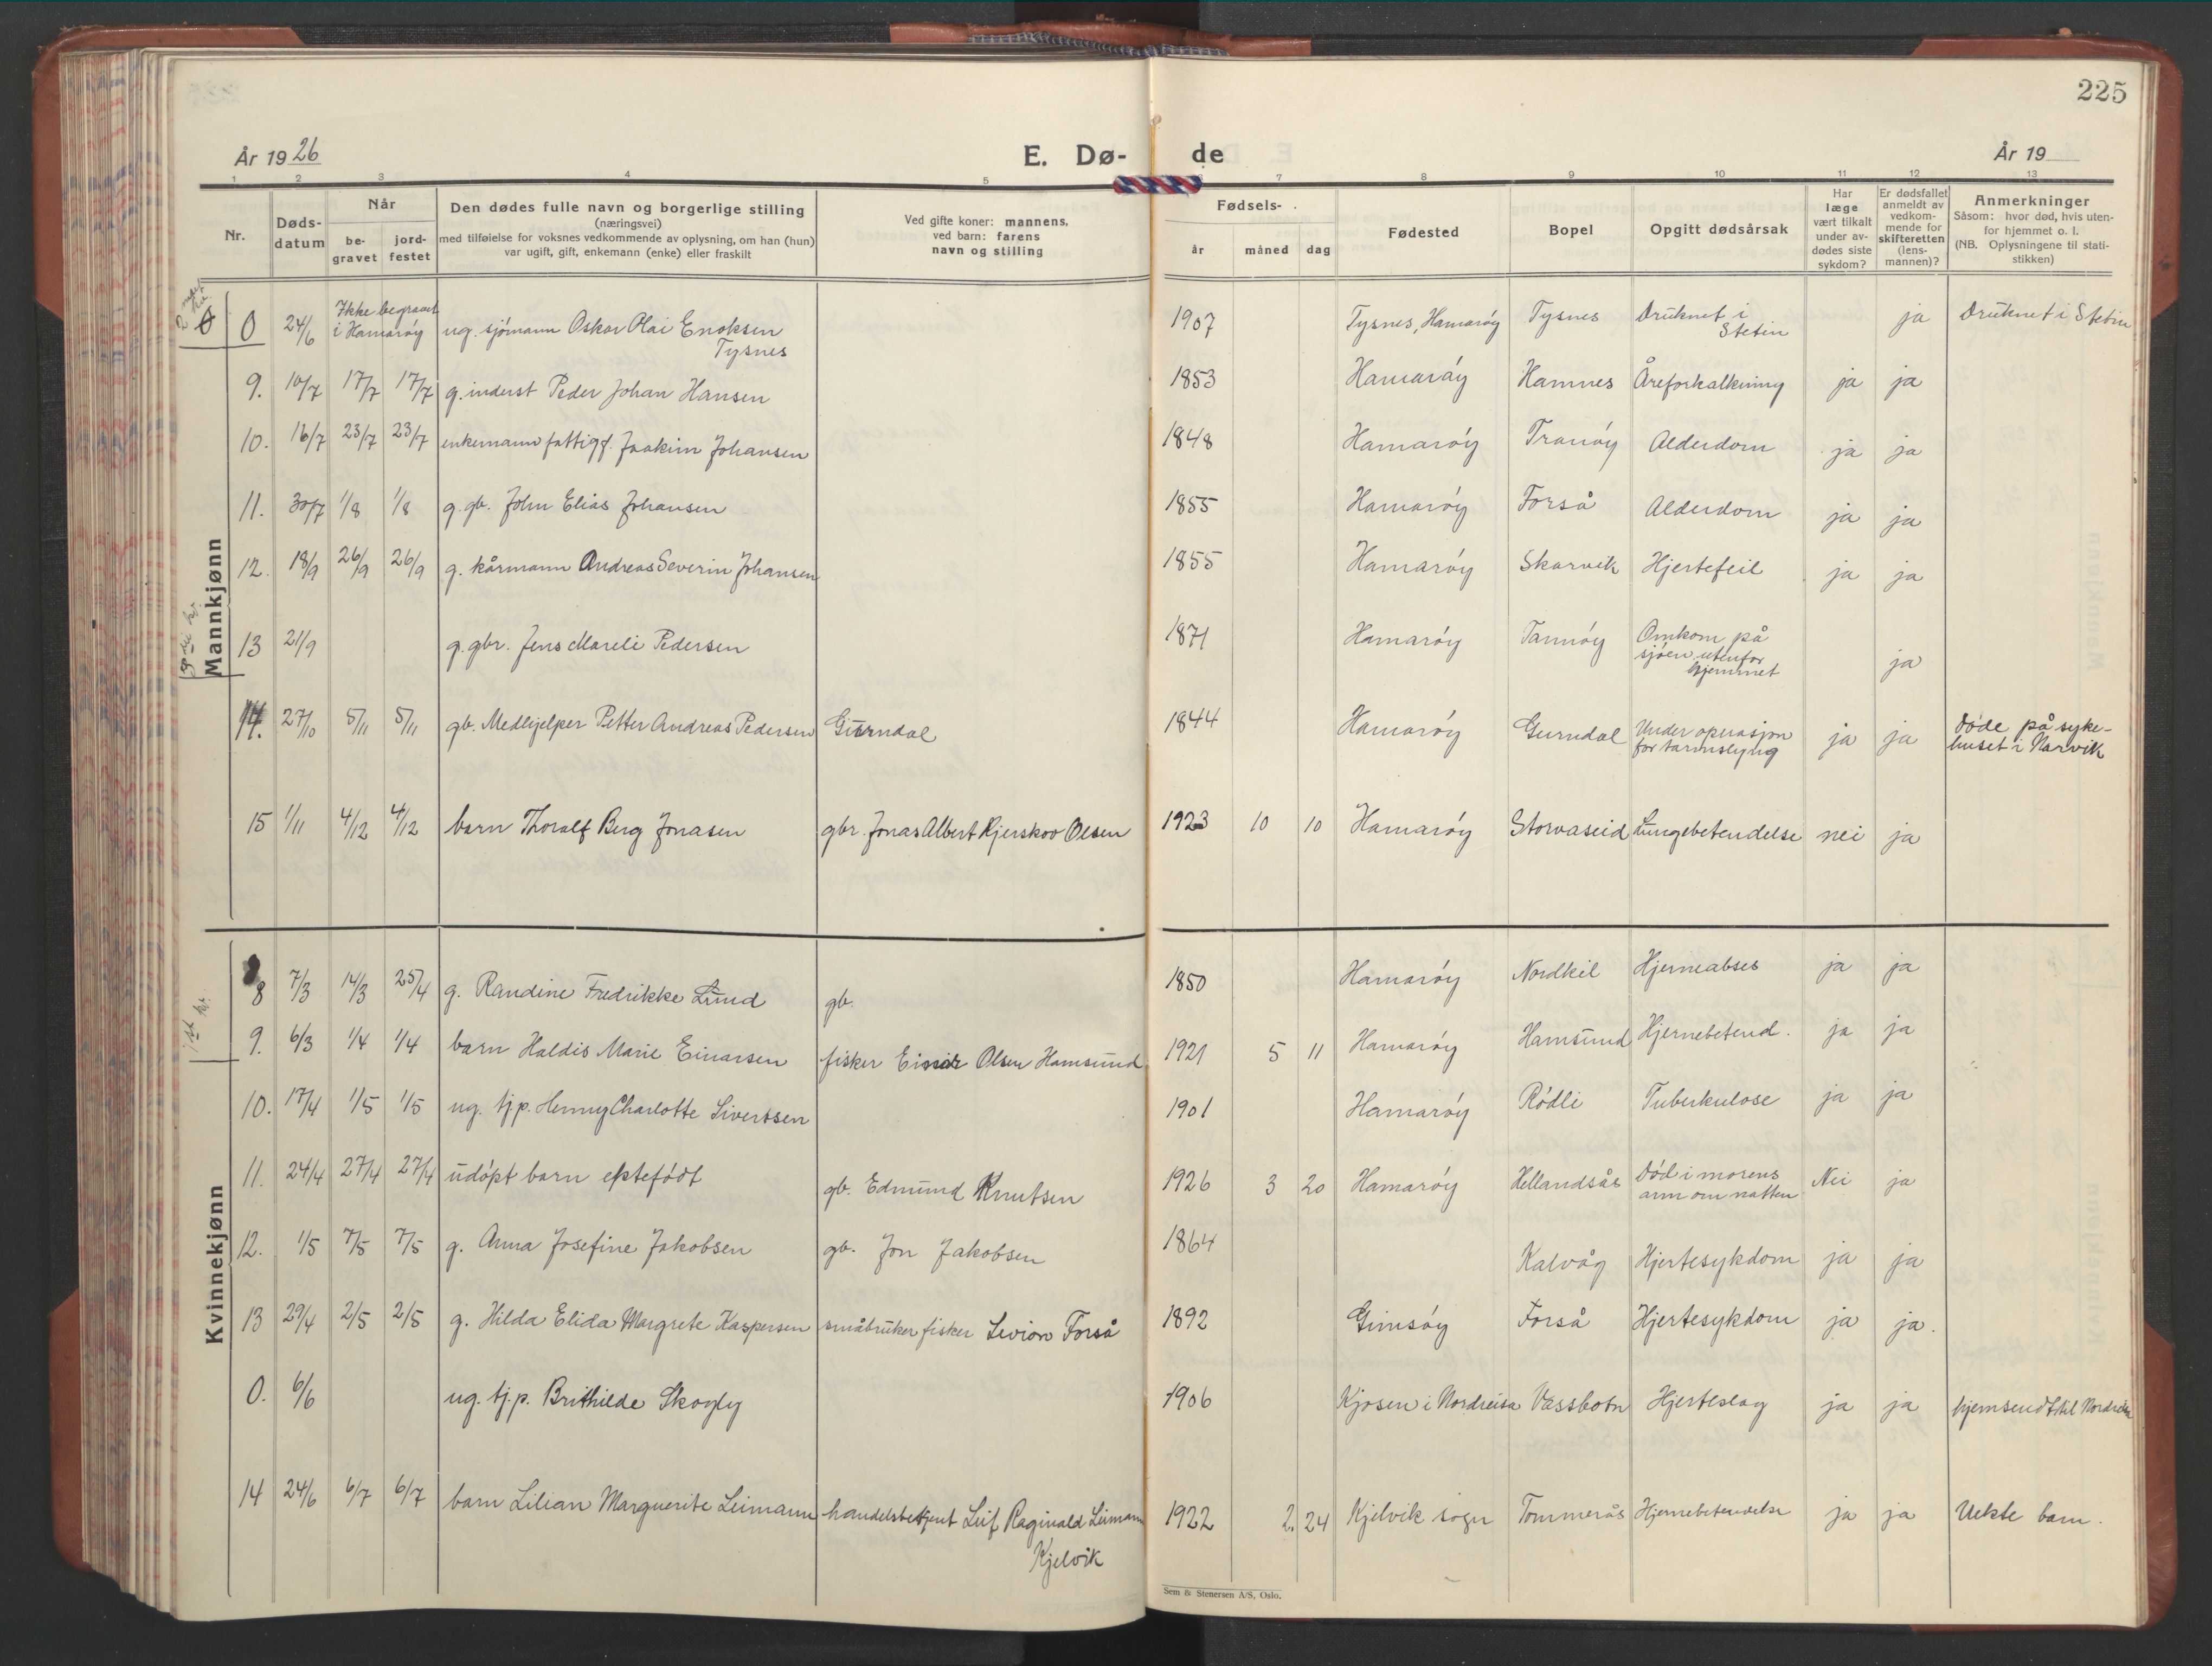 225
År 1926
E. Dø-
de
År 19
1 2 3 4 5 7 8 9 10 11 12 13
Nr.
Døds-
datum
Når
be-
gravet
jord-
festet
Den dødes fulle navn og borgerlige stilling
(næringsvei)
med tilføielse for voksnes vedkommende av oplysning, om han (hun)
var ugift, gift, enkemann (enke) eller fraskilt
Ved gifte koner: mannens,
ved barn: farens
navn og stilling
Fødsels-
år
måned
dag
Fødested
Bopel
Opgitt dødsårsak
Har
læge
vært tilkalt
under av-
dødes siste
sykdom?
Er dødsfallet
anmeldt av
vedkom-
mende for
skifteretten
(lens-
mannen)?
Anmerkninger
Såsom: hvor død, hvis uten-
for hjemmet o. l.
(NB. Oplysningene til stati-
stikken)
Mannkjønn
0 24/6 Ikke begravet i Hamarøy ug. sjømann Oskar Olai Enoksen Tysnes 1907 Tysnes, Hamarøy Tysnes Druknet i Stetin ja Druknet i Stetin
9. 10/7 17/7 17/7 g. inderst Peder Johan Hansen 1853 Hamarøy Hamnes Åreforkalkning ja ja
10. 16/7 23/7 23/7 enkemann fattigf. Joakim Johansen 1848 Hamarøy Tranøy Alderdom ja ja
11. 30/7 1/8 1/8 g. gb. John Elias Johansen 1855 Hamarøy Forså Alderdom ja ja
12. 18/9 26/9 26/9 g. kårmann Andreas Severin Johansen 1855 Hamarøy Skarvik Hjertefeil ja ja
13 21/9 g. gbr. Jens Mareli Pedersen 1871 Hamarøy Tannøy Omkom på sjøen utenfor hjemmet ja
14. 27/10 5/11 5/11 gb. Medhjelper Petter Andreas Pedersen Gurndal 1844 Hamarøy Gurndal Under operasjon for tarmslyng ja ja døde på syke-
huset i Narvik
15 1/11 4/12 4/12 barn Thoralf Berg Jonasen gbr. Jonas Albert Kjerskov Olsen 1923 10 10 Hamarøy Storvaseid Lungebetendelse nei ja
Kvinnekjønn
8 7/3 14/3 25/4 g. Randine Fredrikke Lund gb. 1850 Hamarøy Nordkil Hjerneabses ja ja
9. 6/3 1/4 1/4 barn Haldis Marie Einarsen fisker Einar Olsen Hamsund 1921 5 11 Hamarøy Hamsund Hjernebetend. ja ja
10. 17/4 1/5 1/5 ug. tj.p. Henny Charlotte Sivertsen 1901 Hamarøy Rødli Tuberkulose ja ja
11. 24/4 27/4 27/4 udøpt barn ektefødt gb. Edmund Knutsen 1926 3 20 Hamarøy Hellandsås Død i morens arm om natten Nei ja
12. 1/5 7/5 7/5 g. Anna Josefine Jakobsen gb. Jon Jakobsen 1864 Kalvåg Hjertesykdom ja ja
13 29/4 2/5 2/5 g. Hilda Elida Margrete Kaspersen småbruker fisker Sevion Forså 1892 Gimsøy Forså Hjertesykdom ja ja.
0. 6/6 ug. tj.p. Brithilde Skogly 1906 Kjosen i Nordreisa Vassbotn Hjerteslag ja ja hjemsendt til Nordreisa
14 24/6 6/7 6/7 barn Lilian Marguerite Leimann handelsbetjent Leif Raginald Leimann Kjelvik 1922 2. 24 Kjelvik sogn Tommerås Hjernebetendelse ja ja Uekte barn.
Sem & Stenersen A/S, Oslo.